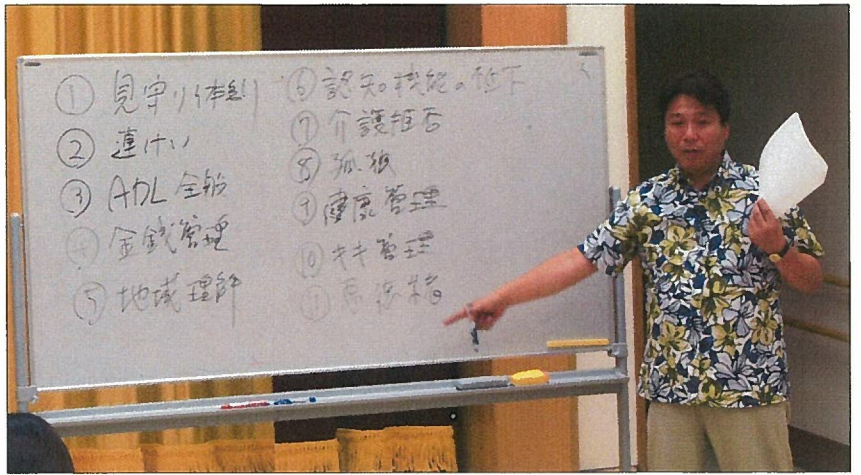 ① 見守り体制
② 連けい
③ ADL 全般
④ 金銭管理
⑤ 地域理解
⑥ 認知機能の低下
⑦ 介護拒否
⑧ 孤独
⑨ 健康管理
⑩ キキ管理
⑪